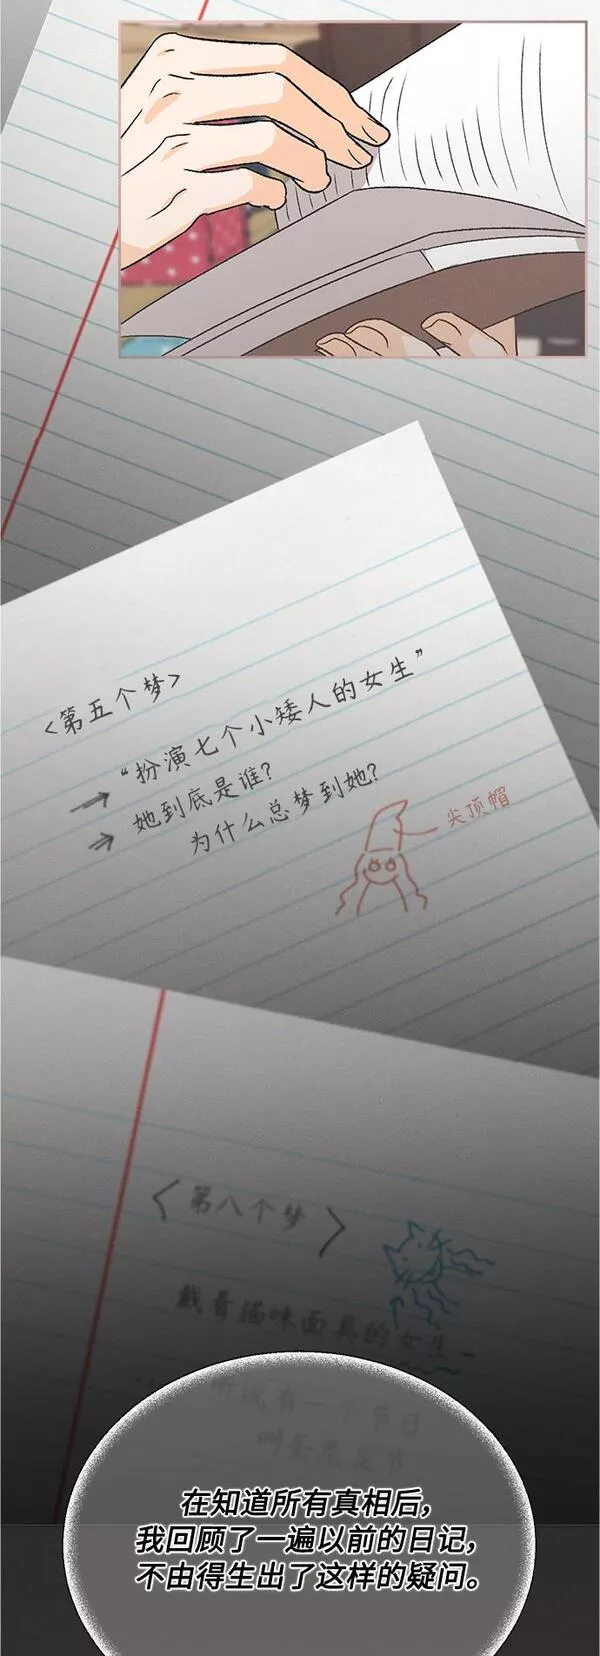 <第五个梦>
→“扮演七个小矮人的女生”
→她到底是谁?
为什么总梦到她?
尖顶帽
<第八个梦>
戴着猫咪面具的女生
听说有一个节日
叫圣克里节
在知道所有真相后,
我回顾了一遍以前的日记,
不由得生出了这样的疑问。